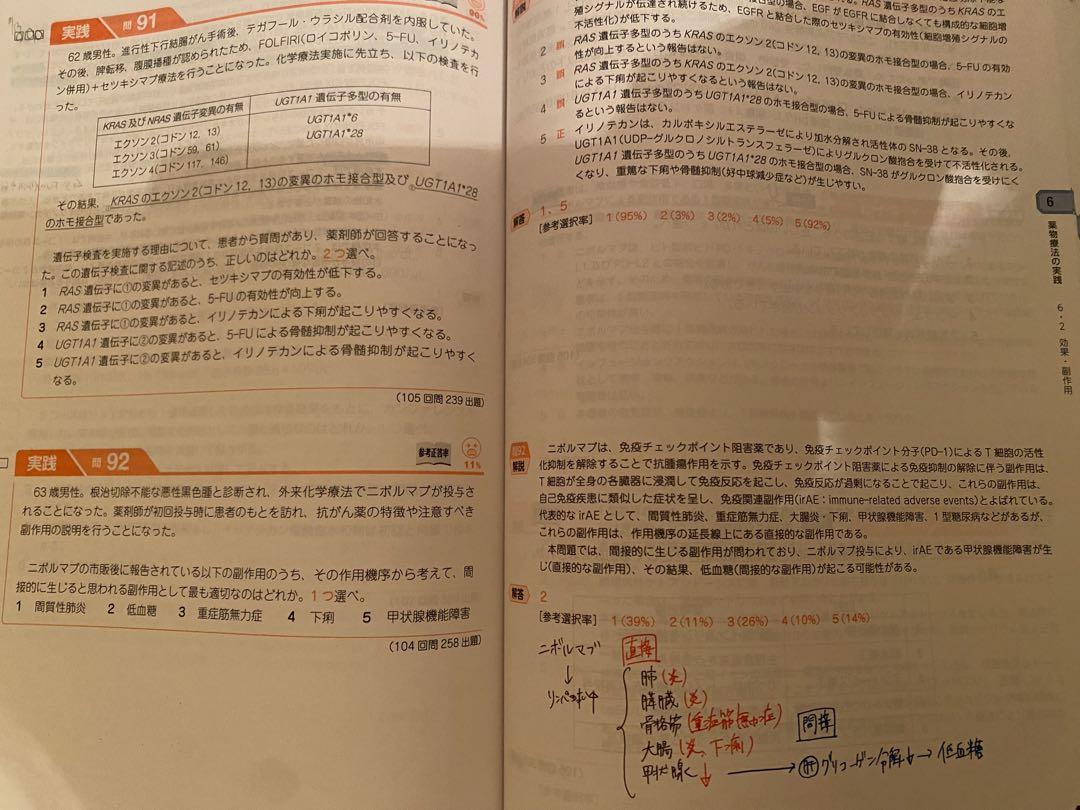 実践 問91
62歳男性。進行性下行結腸がん手術後、テガフール・ウラシル配合剤を内服していた。
その後、脾転移、腹膜播種が認められたため、FOLFIRI(ロイコボリン、5-FU、イリノテカ
ン併用)+セツキシマブ療法を行うことになった。化学療法実施に先立ち、以下の検査を行
った。
KRAS及びNRAS遺伝子変異の有無
UGT1A1遺伝子多型の有無
エクソン2(コドン12, 13)
エクソン3(コドン59, 61)
エクソン4(コドン117, 146)
UGT1A1*6
UGT1A1*28
その結果、①KRASのエクソン2(コドン12, 13)の変異のホモ接合型及び②UGT1A1*28
のホモ接合型であった。
遺伝子検査を実施する理由について、患者から質問があり、薬剤師が回答することになっ
た。この遺伝子検査に関する記述のうち、正しいのはどれか。2つ選べ。
1 RAS遺伝子に①の変異があると、セツキシマブの有効性が低下する。
2 RAS遺伝子に①の変異があると、5-FUの有効性が向上する。
3 RAS遺伝子に①の変異があると、イリノテカンによる下痢が起こりやすくなる。
4 UGT1A1遺伝子に②の変異があると、5-FUによる骨髄抑制が起こりやすくなる。
5 UGT1A1遺伝子に②の変異があると、イリノテカンによる骨髄抑制が起こりやすく
なる。
(105回問239出題)
実践 問92
参考正答率
11%
63歳男性。根治切除不能な悪性黒色腫と診断され、外来化学療法でニボルマブが投与さ
れることになった。薬剤師が初回投与時に患者のもとを訪れ、抗がん薬の特徴や注意すべき
副作用の説明を行うことになった。
ニボルマブの市販後に報告されている以下の副作用のうち、その作用機序から考えて、間
接的に生じると思われる副作用として最も適切なのはどれか。1つ選べ。
1 間質性肺炎 2 低血糖 3 重症筋無力症 4 下痢 5 甲状腺機能障害
(104回問258出題)
解説
殖シグナルが伝達され続けるため、EGFRと結合した際のセツキシマブの有効性(細胞増殖シグナルの
不活性化)が低下する。
2 誤 RAS遺伝子多型のうちKRASのエクソン2(コドン12, 13)の変異のホモ接合型の場合、5-FUの有効
性が向上するという報告はない。
3 誤 RAS遺伝子多型のうちKRASのエクソン2(コドン12, 13)の変異のホモ接合型の場合、イリノテカン
による下痢が起こりやすくなるという報告はない。
4 誤 UGT1A1遺伝子多型のうちUGT1A1*28のホモ接合型の場合、5-FUによる骨髄抑制が起こりやすくな
るという報告はない。
5 正 イリノテカンは、カルボキシルエステラーゼにより加水分解され活性体のSN-38となる。その後、
UGT1A1(UDP-グルクロノシルトランスフェラーゼ)によりグルクロン酸抱合を受けて不活性化される。
UGT1A1遺伝子多型のうちUGT1A1*28のホモ接合型の場合、SN-38がグルクロン酸抱合を受けにく
くなり、重篤な下痢や骨髄抑制(好中球減少症など)が生じやすい。
解答 1、5
[参考選択率] 1(95%) 2(3%) 3(2%) 4(5%) 5(92%)
6
薬物療法の実践
6・2 効果・副作用
問92
解説
ニボルマブは、免疫チェックポイント阻害薬であり、免疫チェックポイント分子(PD-1)によるT細胞の活性
化抑制を解除することで抗腫瘍作用を示す。免疫チェックポイント阻害薬による免疫抑制の解除に伴う副作用は、
T細胞が全身の各臓器に浸潤して免疫反応を起こし、免疫反応が過剰になることで起こり、これらの副作用は、
自己免疫疾患に類似した症状を呈し、免疫関連副作用(irAE:immune-related adverse events)とよばれている。
代表的なirAEとして、間質性肺炎、重症筋無力症、大腸炎・下痢、甲状腺機能障害、1型糖尿病などがあるが、
これらの副作用は、作用機序の延長線上にある直接的な副作用である。
本問題では、間接的に生じる副作用が問われており、ニボルマブ投与により、irAEである甲状腺機能障害が生
じ(直接的な副作用)、その結果、低血糖(間接的な副作用)が起こる可能性がある。
解答 2
[参考選択率] 1(39%) 2(11%) 3(26%) 4(10%) 5(14%)
ニボルマブ 直接
↓
肺(炎)
膵臓(炎)
骨格筋(重症筋無力症) 間接
大腸(炎、下痢)
甲状腺く ↓ → 肝グリコーゲン分解↓→低血糖